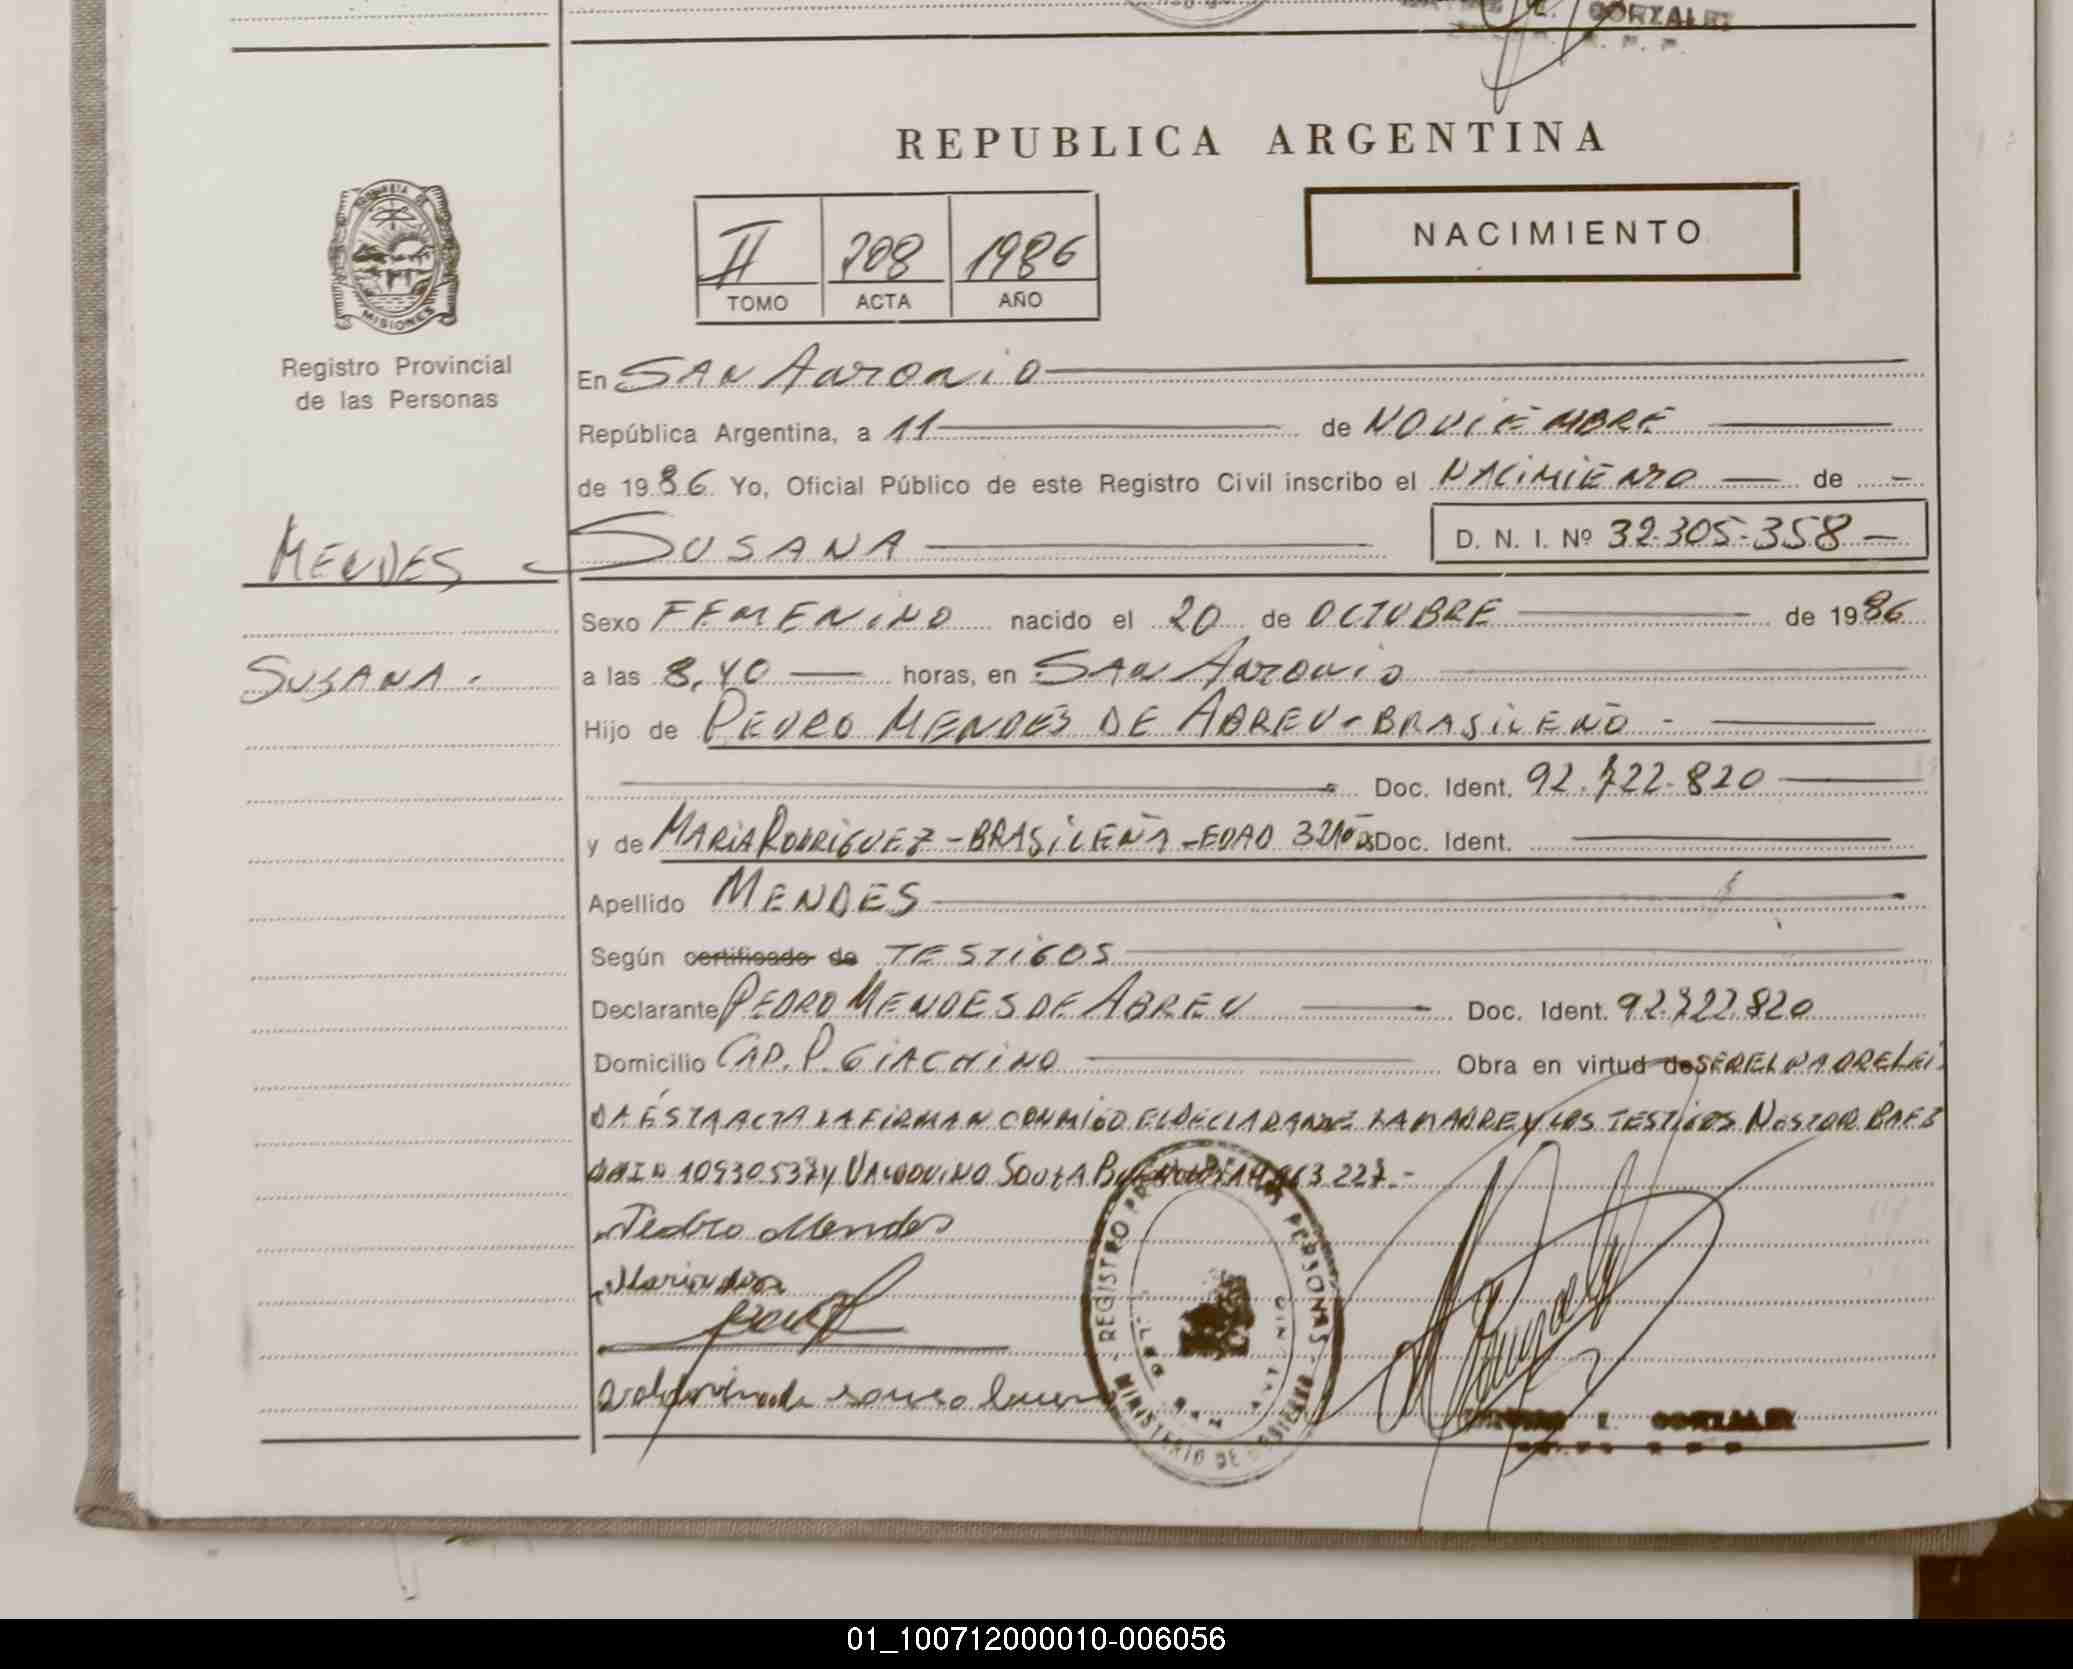 E. GONZALEZ
REPUBLICA ARGENTINA
NACIMIENTO
II 208 1986
TOMO ACTA AÑO
MISIONES
Registro Provincial
de las Personas
En SAN ANTONIO
República Argentina, a 11 de NOVIEMBRE
de 1986 Yo, Oficial Público de este Registro Civil inscribo el NACIMIENTO de
MENDES SUSANA D. N. I. Nº 32.305.358
Sexo FEMENINO nacido el 20 de OCTUBRE de 1986
SUSANA. a las 8,40 horas, en SAN ANTONIO
Hijo de PEDRO MENDES DE ABREU - BRASILEÑO -
Doc. Ident. 92.722.820
y de MARIA RODRIGUEZ - BRASILEÑA - EDAD 32 años Doc. Ident.
Apellido MENDES
Según certificado de TESTIGOS
Declarante PEDRO MENDES DE ABREU Doc. Ident. 92.722.820
Domicilio CAP. P. GIACHINO Obra en virtud de SER EL PADRE LEI
DA ÉSTA ACTA LA FIRMAN CONMIGO EL DECLARANTE LA MADRE Y LOS TESTIGOS NESTOR BAEZ
10930537 y VALDOVINO SOUZA 227.-
Pedro Mendes
REGISTRO PROVINCIAL DE LAS PERSONAS
MINISTERIO DE GOBIERNO
E. GONZALEZ
01_100712000010-006056